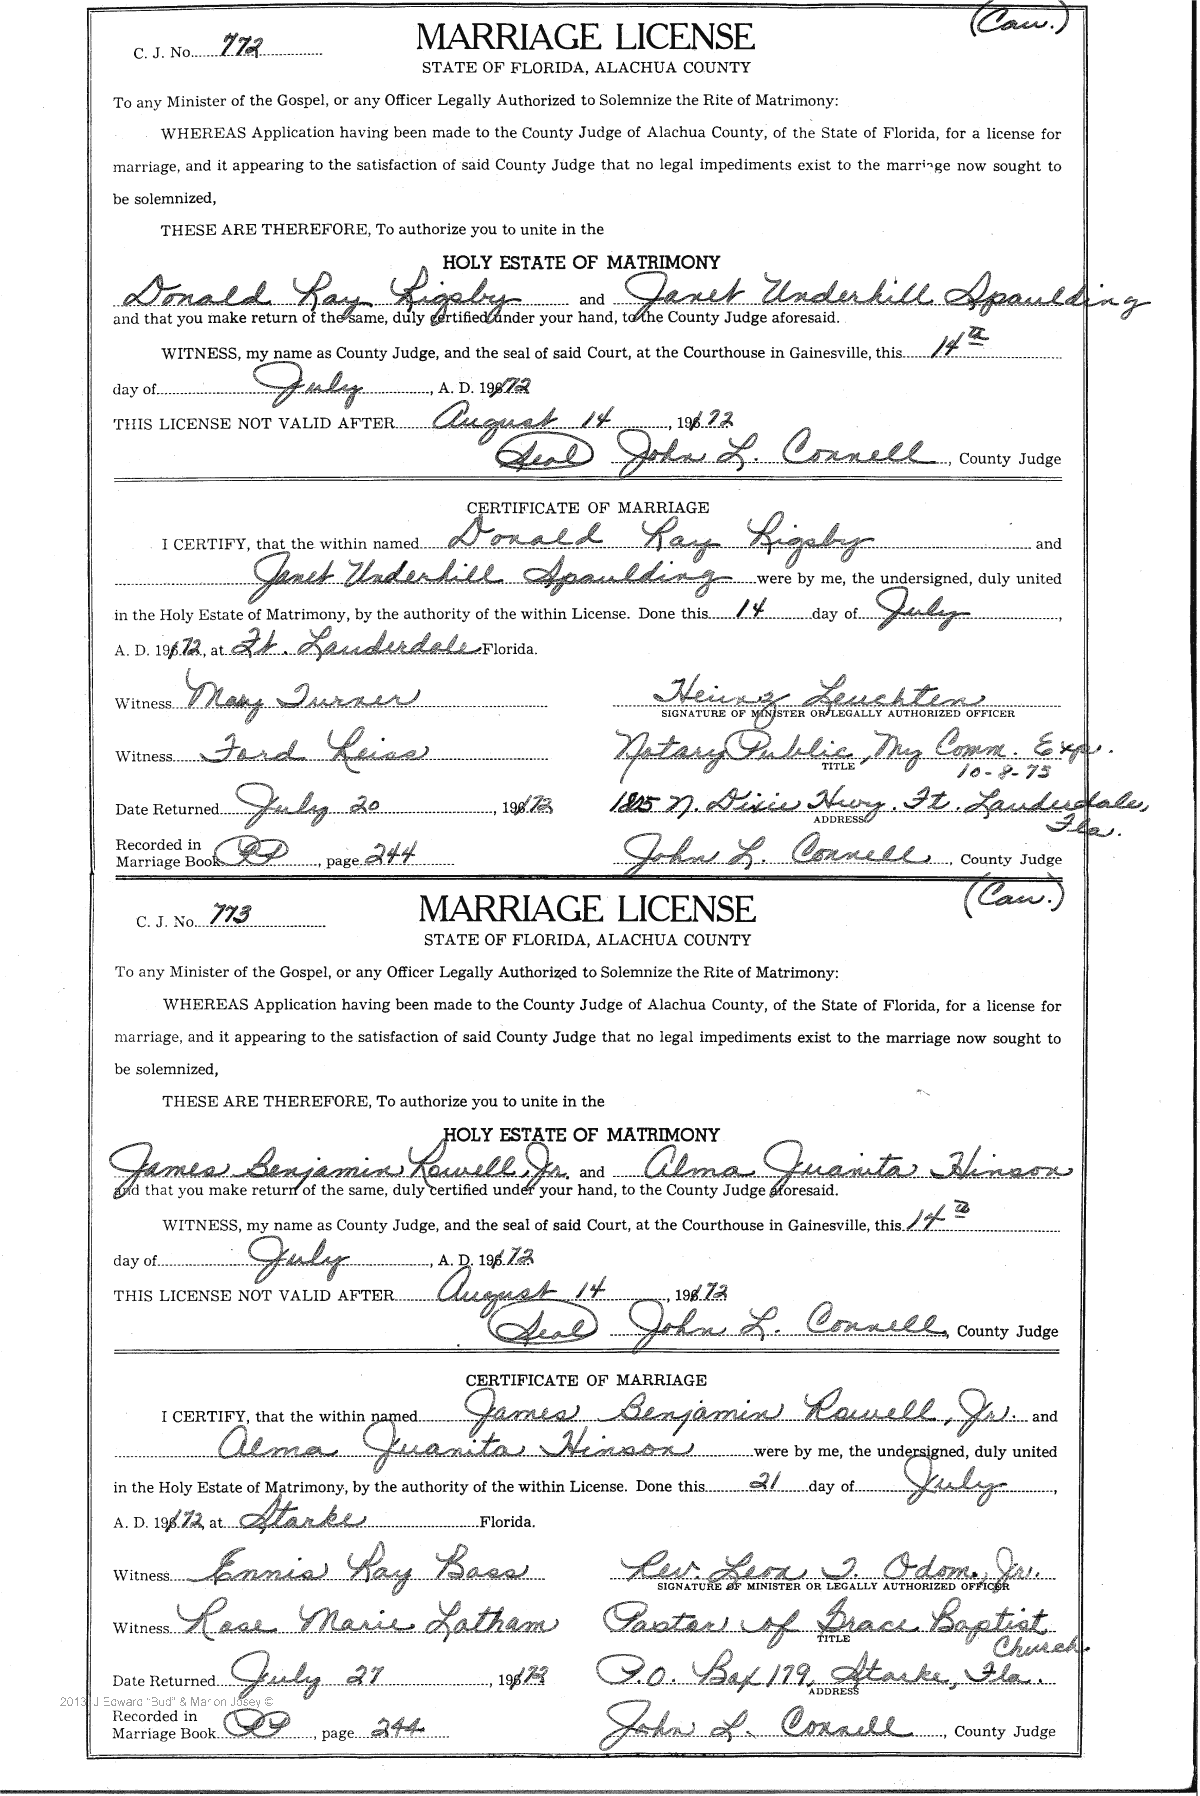 (Cau.)
C. J. No. 772 MARRIAGE LICENSE
STATE OF FLORIDA, ALACHUA COUNTY
To any Minister of the Gospel, or any Officer Legally Authorized to Solemnize the Rite of Matrimony:
WHEREAS Application having been made to the County Judge of Alachua County, of the State of Florida, for a license for
marriage, and it appearing to the satisfaction of said County Judge that no legal impediments exist to the marriage now sought to
be solemnized,
THESE ARE THEREFORE, To authorize you to unite in the
HOLY ESTATE OF MATRIMONY
Donald Ray Rigsby and Janet Underhill Spaulding
and that you make return of the same, duly certified under your hand, to the County Judge aforesaid.
WITNESS, my name as County Judge, and the seal of said Court, at the Courthouse in Gainesville, this 14th
day of July, A. D. 1972
THIS LICENSE NOT VALID AFTER August 14, 1972
Seal John L. Connell, County Judge
CERTIFICATE OF MARRIAGE
I CERTIFY, that the within named Donald Ray Rigsby and
Janet Underhill Spaulding were by me, the undersigned, duly united
in the Holy Estate of Matrimony, by the authority of the within License. Done this 14 day of July,
A. D. 1972, at Ft. Lauderdale Florida.
Witness Mary Turner Heinz Leuchten
SIGNATURE OF MINISTER OR LEGALLY AUTHORIZED OFFICER
Witness Ford Reiss Notary Public, My Comm. Exp.
TITLE 10-8-75
Date Returned July 20, 1972 1815 N. Dixie Hwy. Ft. Lauderdale,
ADDRESS Fla.
Recorded in
Marriage Book PP, page 244 John L. Connell, County Judge
(Cau.)
C. J. No. 773 MARRIAGE LICENSE
STATE OF FLORIDA, ALACHUA COUNTY
To any Minister of the Gospel, or any Officer Legally Authorized to Solemnize the Rite of Matrimony:
WHEREAS Application having been made to the County Judge of Alachua County, of the State of Florida, for a license for
marriage, and it appearing to the satisfaction of said County Judge that no legal impediments exist to the marriage now sought to
be solemnized,
THESE ARE THEREFORE, To authorize you to unite in the
HOLY ESTATE OF MATRIMONY
James Benjamin Rowell, Jr. and Alma Juanita Hinson
and that you make return of the same, duly certified under your hand, to the County Judge aforesaid.
WITNESS, my name as County Judge, and the seal of said Court, at the Courthouse in Gainesville, this 14th
day of July, A. D. 1972
THIS LICENSE NOT VALID AFTER August 14, 1972
Seal John L. Connell, County Judge
CERTIFICATE OF MARRIAGE
I CERTIFY, that the within named James Benjamin Rowell, Jr. and
Alma Juanita Hinson were by me, the undersigned, duly united
in the Holy Estate of Matrimony, by the authority of the within License. Done this 21 day of July,
A. D. 1972, at Starke Florida.
Witness Ennis Ray Bass Rev. Leon T. Odom, Jr.
SIGNATURE OF MINISTER OR LEGALLY AUTHORIZED OFFICER
Witness Rose Marie Latham Pastor of Grace Baptist
TITLE Church
Date Returned July 27, 1972 P.O. Box 179, Starke, Fla.
ADDRESS
2013 J Edward "Bud" & Marion Josey ©
Recorded in
Marriage Book PP, page 244 John L. Connell, County Judge